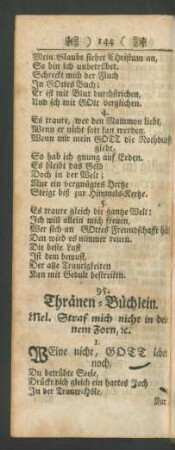 144
Mein Glaube siehet Christum an,
So bin ich unbetrübet.
Schreckt mich der Fluch
In GOttes Buch;
Er ist mit Blut durchstrichen,
Und ich mit GOtt verglichen.
4.
Es traure, wer den Mammon liebt,
Wenn er nicht satt kan werden.
Wenn mir mein GOTT die Nothdurft
giebt,
So hab ich gnung auf Erden.
Es bleibt das Geld
Doch in der Welt;
Nur ein vergnügtes Hertze
Steigt biß zur Himmels-Kertze.
5.
Es traure gleich die gantze Welt:
Ich will allein mich freuen,
Wer sich an GOttes Freundschafft hält
Den wird es nimmer reuen.
Die beste Lust
Ist dem bewust,
Der alle Traurigkeiten
Kan mit Gedult bestreiten.
95.
Thränen-Büchlein.
Mel. Straf mich nicht in dei
nem Zorn, ec.
1.
WEine nicht, GOTT lebet
noch,
Du betrübte Seele,
Drückt dich gleich ein hartes Joch
In der Trauer-Höle.
Nur